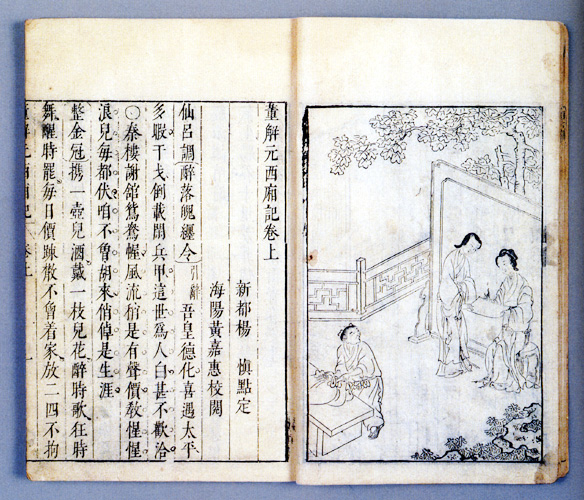 董解元西廂記卷上
新都楊 慎點定
海陽黃嘉惠校閱
仙呂調 醉落魄纏令 引辭 吾皇德化喜遇太平
多暇干戈倒載閑兵甲這世為人白甚不歡洽
○秦樓謝館鴛鴦幄風流稍是有聲價教惺惺
浪兒每都伏咱不曾胡來俏倬是生涯
整金冠携一壺兒酒戴一枝兒花醉時歌狂時
舞醒時罷每日價疎散不曾着家放二四不拘
董解元西廂記 卷上 一